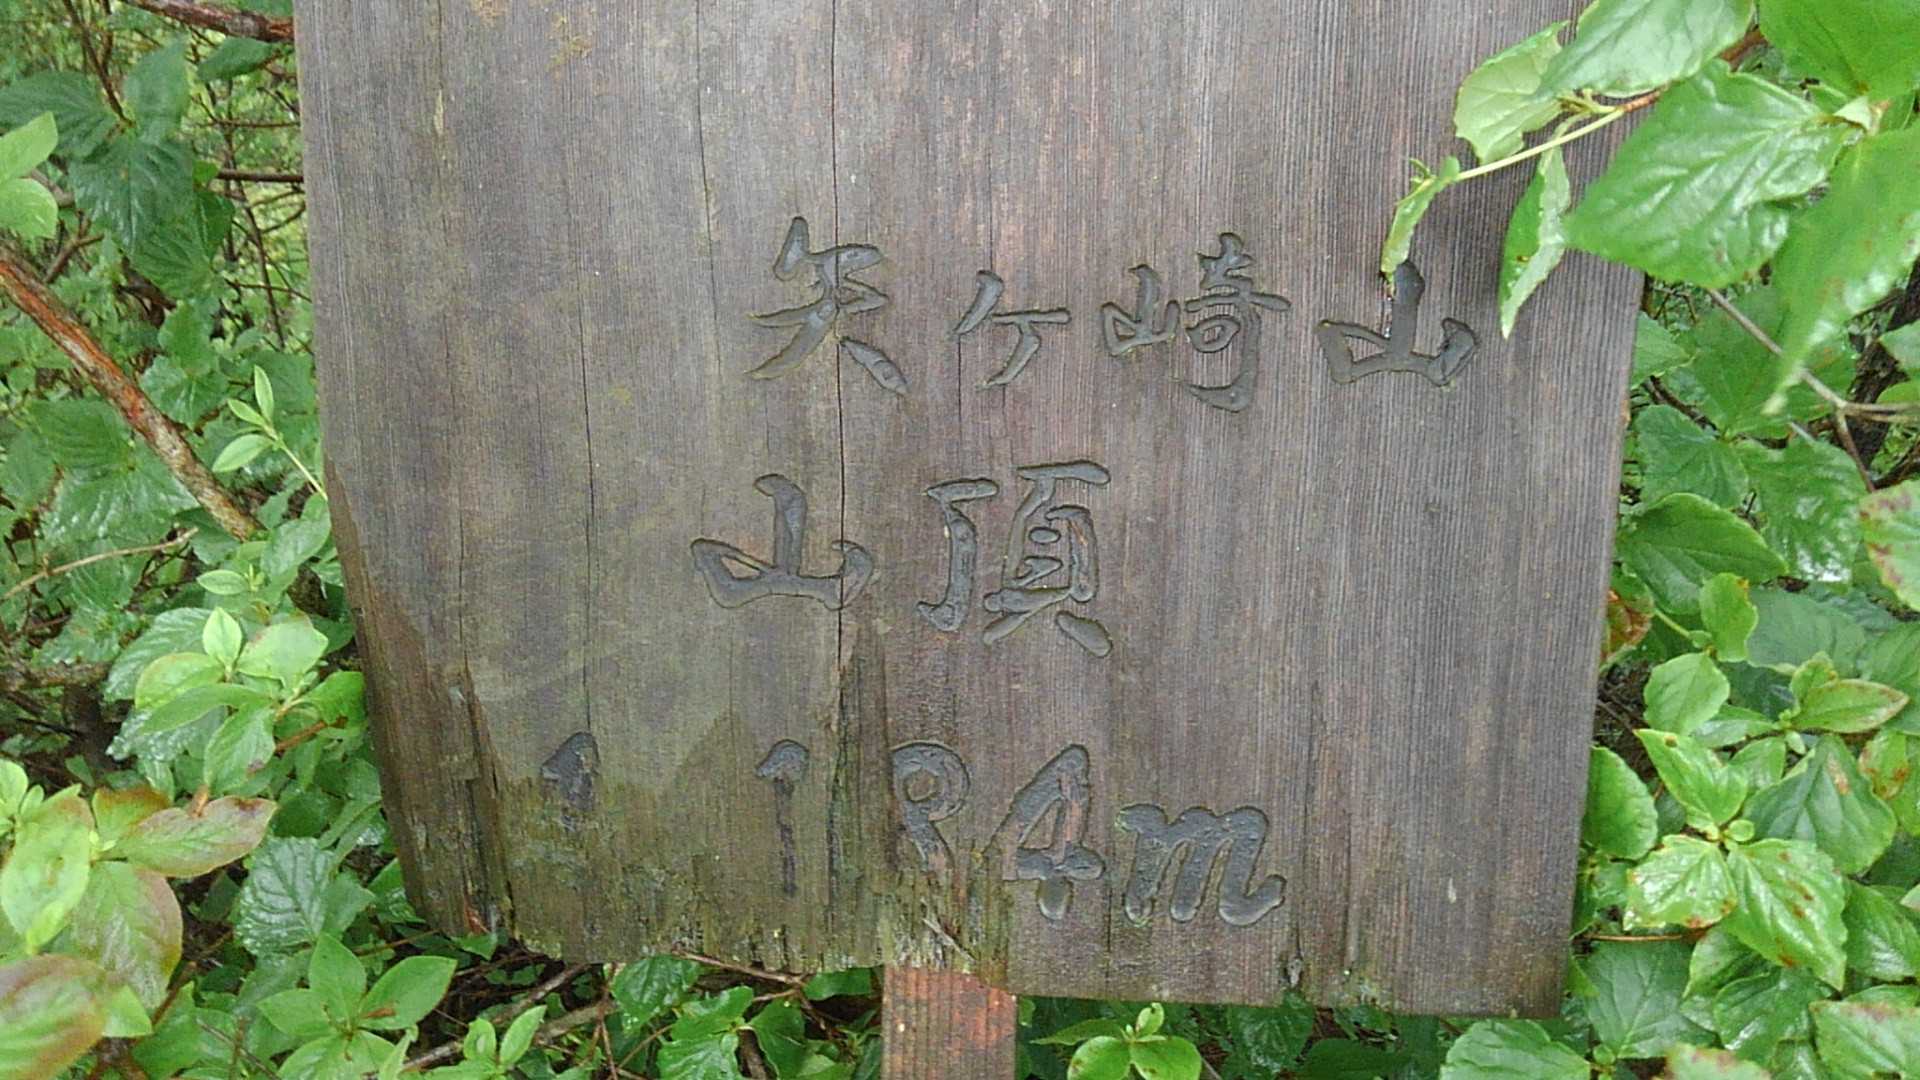 矢ケ崎山
山頂
1184m